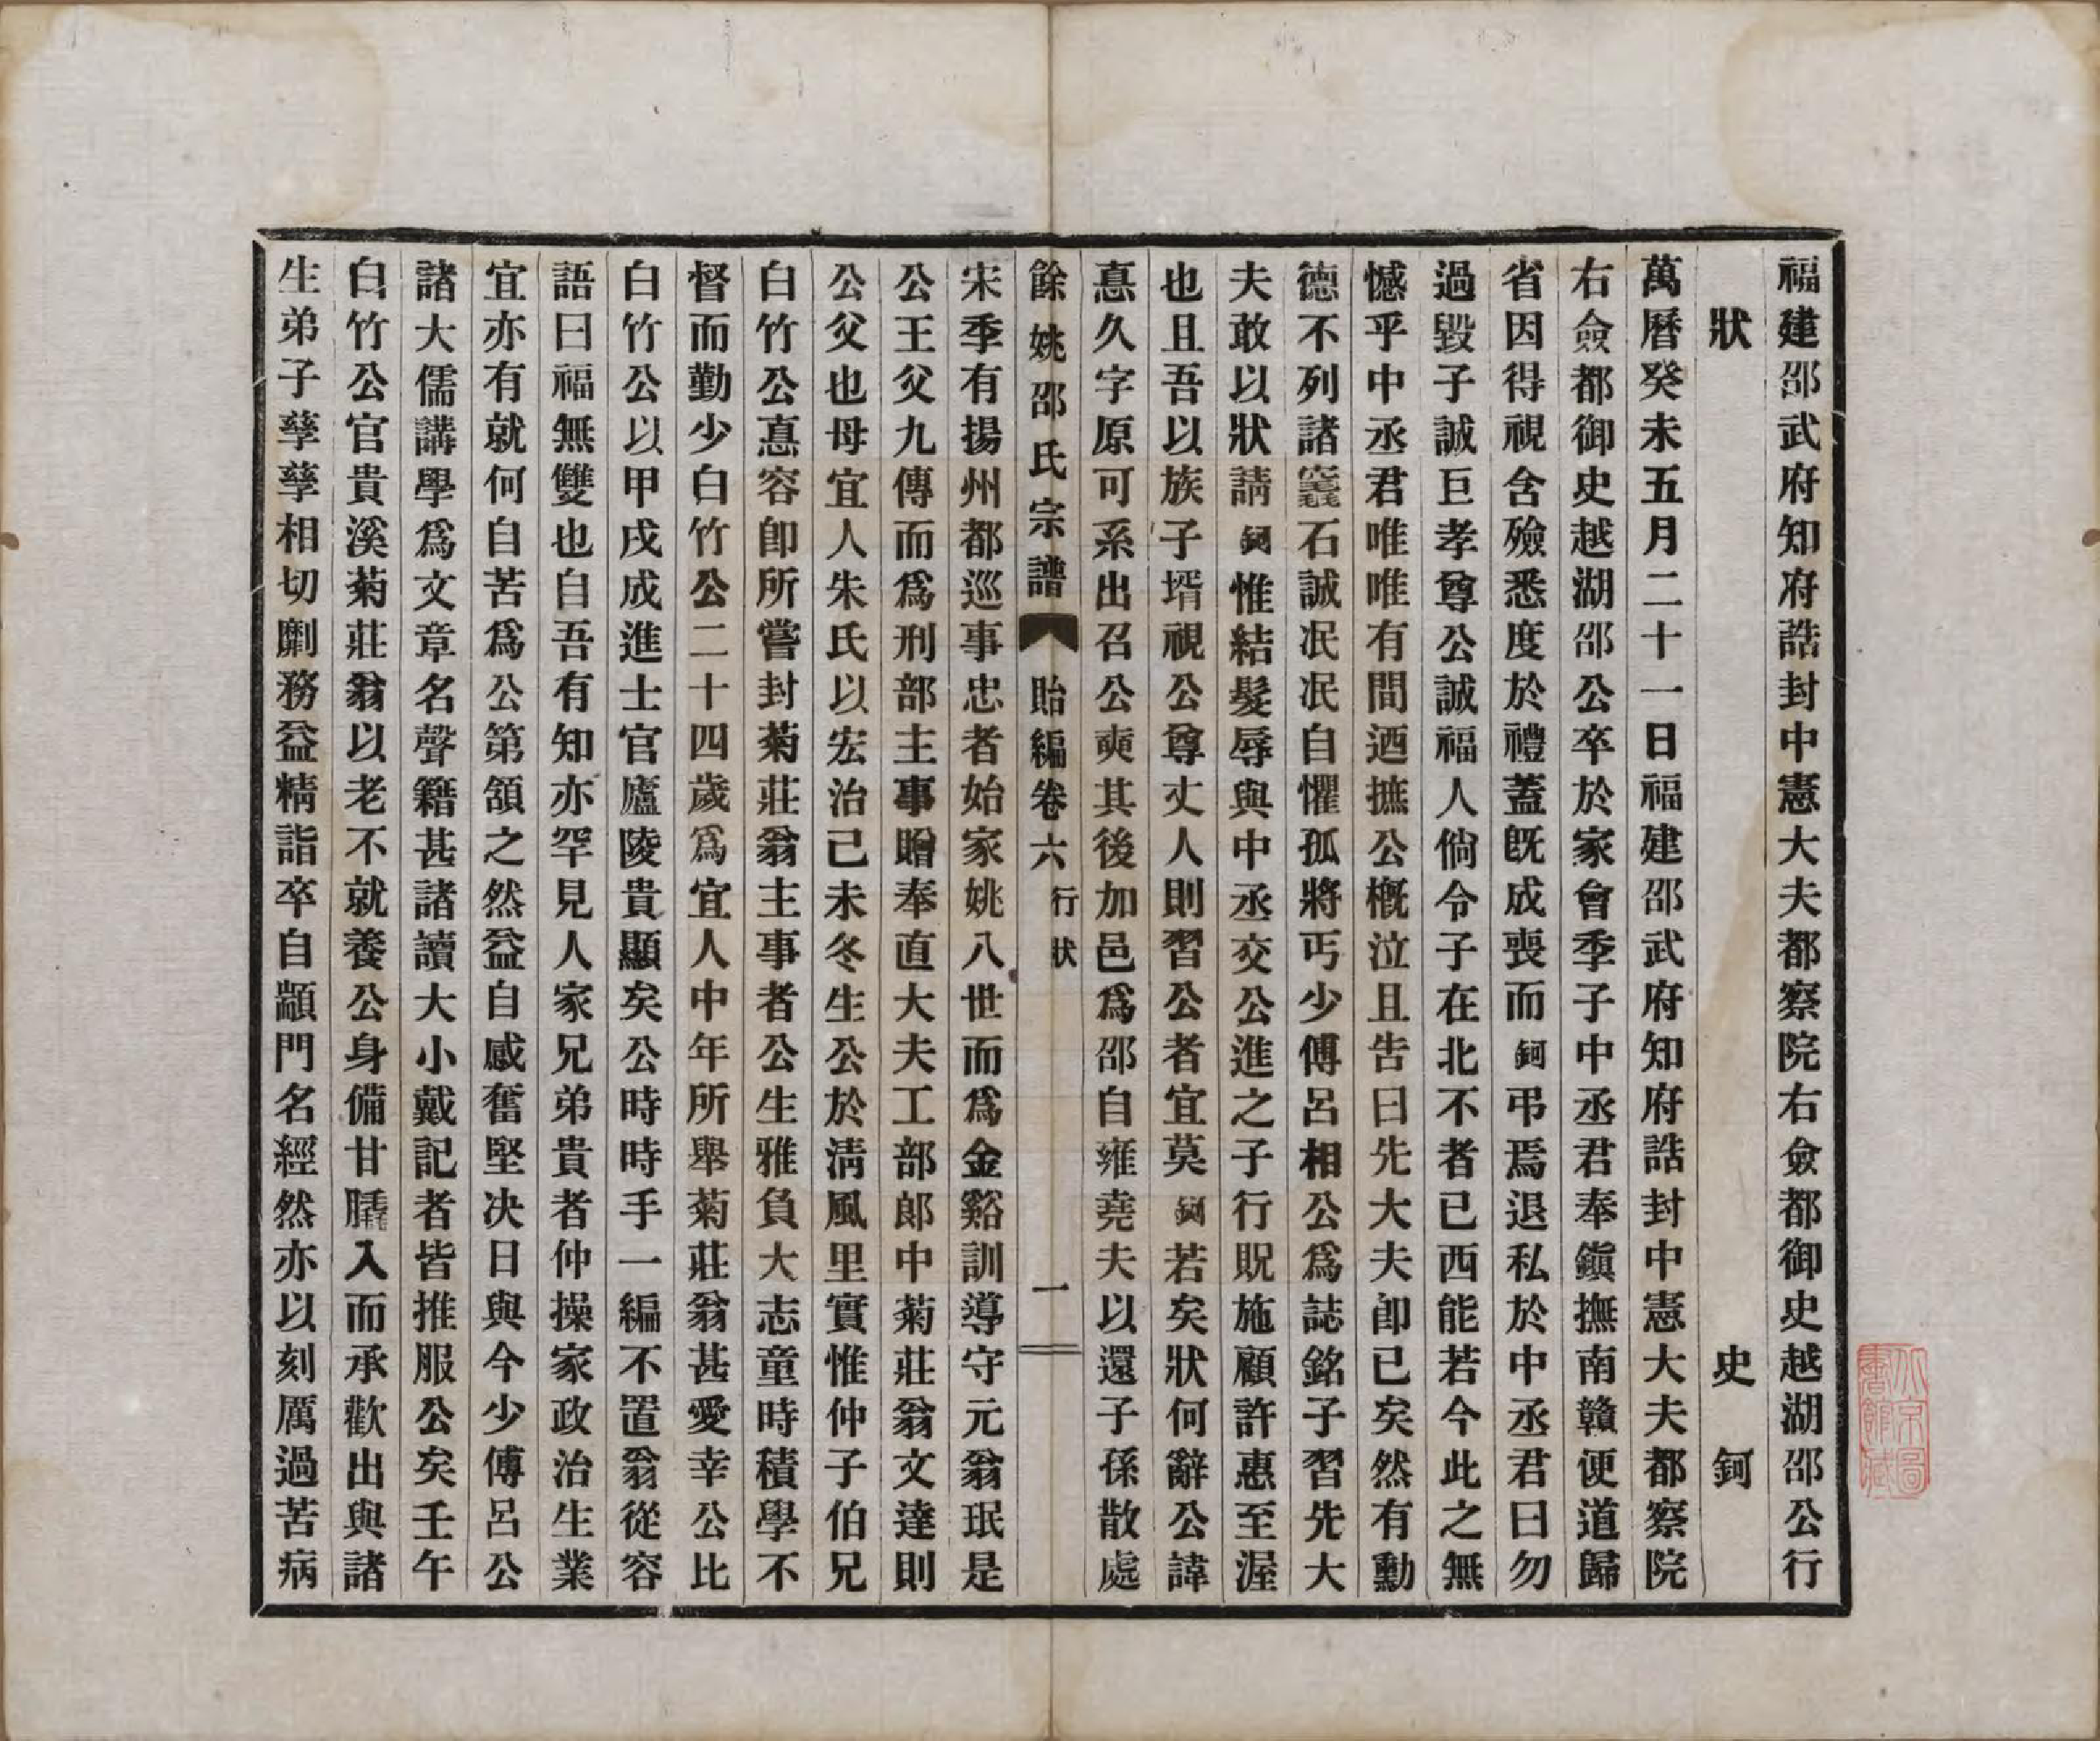 福建邵武府知府誥封中憲大夫都察院右僉都御史越湖邵公行
狀　史　鈳
萬曆癸未五月二十一日福建邵武府知府誥封中憲大夫都察院
右僉都御史越湖邵公卒於家會季子中丞君奉鎭撫南贛便道歸
省因得視含殮悉度於禮蓋旣成喪而鈳弔焉退私於中丞君曰勿
過毀子誠巨孝尊公誠福人倘令子在北不者已西能若今此之無
憾乎中丞君唯唯有間迺摭公槪泣且告曰先大夫卽已矣然有勳
德不列諸窆石誠泯泯自懼孤將丐少傅呂相公爲誌銘子習先大
夫敢以狀請鈳惟結髮辱與中丞交公進之子行貺施顧許惠至渥
也且吾以族子壻視公尊丈人則習公者宜莫鈳若矣狀何辭公諱
悳久字原可系出召公奭其後加邑爲邵自雍堯夫以還子孫散處
餘姚邵氏宗譜　貽編卷六　行狀　一
宋季有揚州都巡事忠者始家姚八世而爲金谿訓導守元翁珉是
公王父九傳而爲刑部主事贈奉直大夫工部郎中菊莊翁文達則
公父也母宜人朱氏以宏治己未冬生公於淸風里實惟仲子伯兄
白竹公悳容卽所嘗封菊莊翁主事者公生雅負大志童時積學不
督而勤少白竹公二十四歲爲宜人中年所舉菊莊翁甚愛幸公比
白竹公以甲戌成進士官廬陵貴顯矣公時時手一編不置翁從容
語曰福無雙也自吾有知亦罕見人家兄弟貴者仲操家政治生業
宜亦有就何自苦爲公第頷之然益自感奮堅决日與今少傅呂公
諸大儒講學爲文章名聲籍甚諸讀大小戴記者皆推服公矣壬午
白竹公官貴溪菊莊翁以老不就養公身備甘膬入而承歡出與諸
生弟子孳孳相切劘務益精詣卒自顓門名經然亦以刻厲過苦病